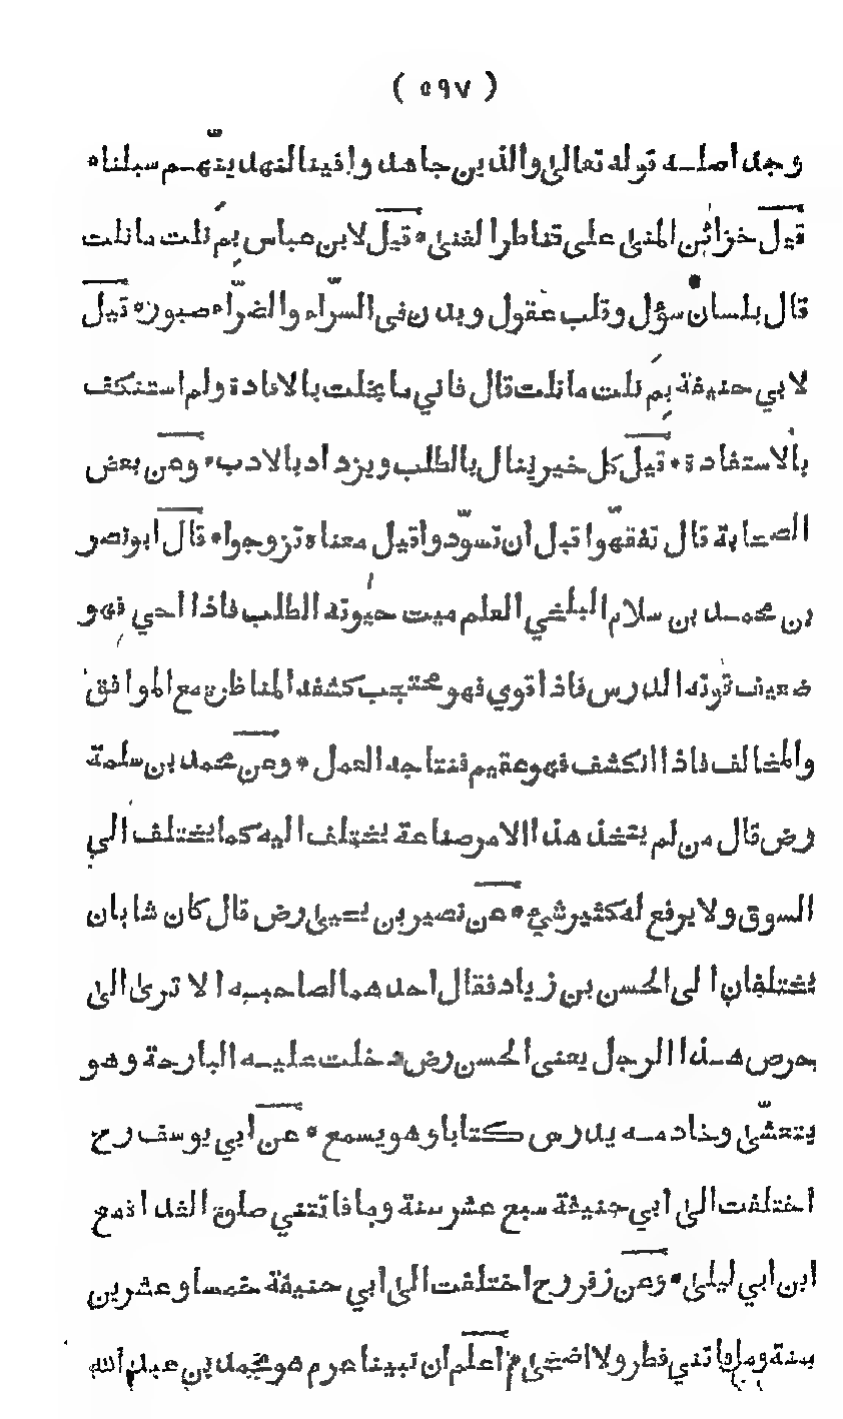 ( ٥٩٧ )
وجد اصلــه قوله تعالىٰ والذين جاهدوا فينا لنهدينّهــم سبلنا *
قيل خزائن المنىٰ على قناطر الغنىٰ * قيل لابن عباس بِمَ نلت ما نلت
قال بلسان سؤل وقلب عقول وبدن في السرّاء والضرّاء صبور * قيل
لابي حنيفة بِمَ نلت ما نلت قال فاني ما بخلت بالافادة ولم استنكف
بالاستفادة * قيل كل خير ينال بالطلب ويزداد بالادب * وعن بعض
الصحابة قال تفقهّوا قبل ان تسوّدوا قيل معناه تزوجوا * قال ابو نصر
بن محمــد بن سلام البلخي العلم ميت حيٰوته الطلب فاذا احي فهو
ضعيف قوته الدرس فاذا قوي فهو محتجب كشفه المناظرة مع الموافق
والمخالف فاذا انكشف فهو عقيم فنتاجه العمل * وعن محمد بن سلمة
رض قال من لم يتخذ هذا الامر صناعة يختلف اليه كما يختلف الي
السوق ولا يرفع له كثير شيء * عن نصير بن يحيىٰ رض قال كان شابان
يختلفان الى الحسن بن زياد فقال احدهما لصاحبه الا ترىٰ الىٰ
حرص هــذا الرجل يعنى الحسن رض دخلت عليــه البارحة وهو
يتعشّىٰ وخادمــه يدرس كتابا وهو يسمع * عن ابي يوسف رح
اختلفت الىٰ ابي حنيفة سبع عشر سنة وما فاتتني صلوة الغداة مع
ابن ابي ليلىٰ * وعن زفر رح اختلفت الىٰ ابي حنيفة خمسا وعشرين
سنة وما فاتني فطر ولا اضحىٰ م اعلم ان نبينا عرم هو محمد بن عبد الله